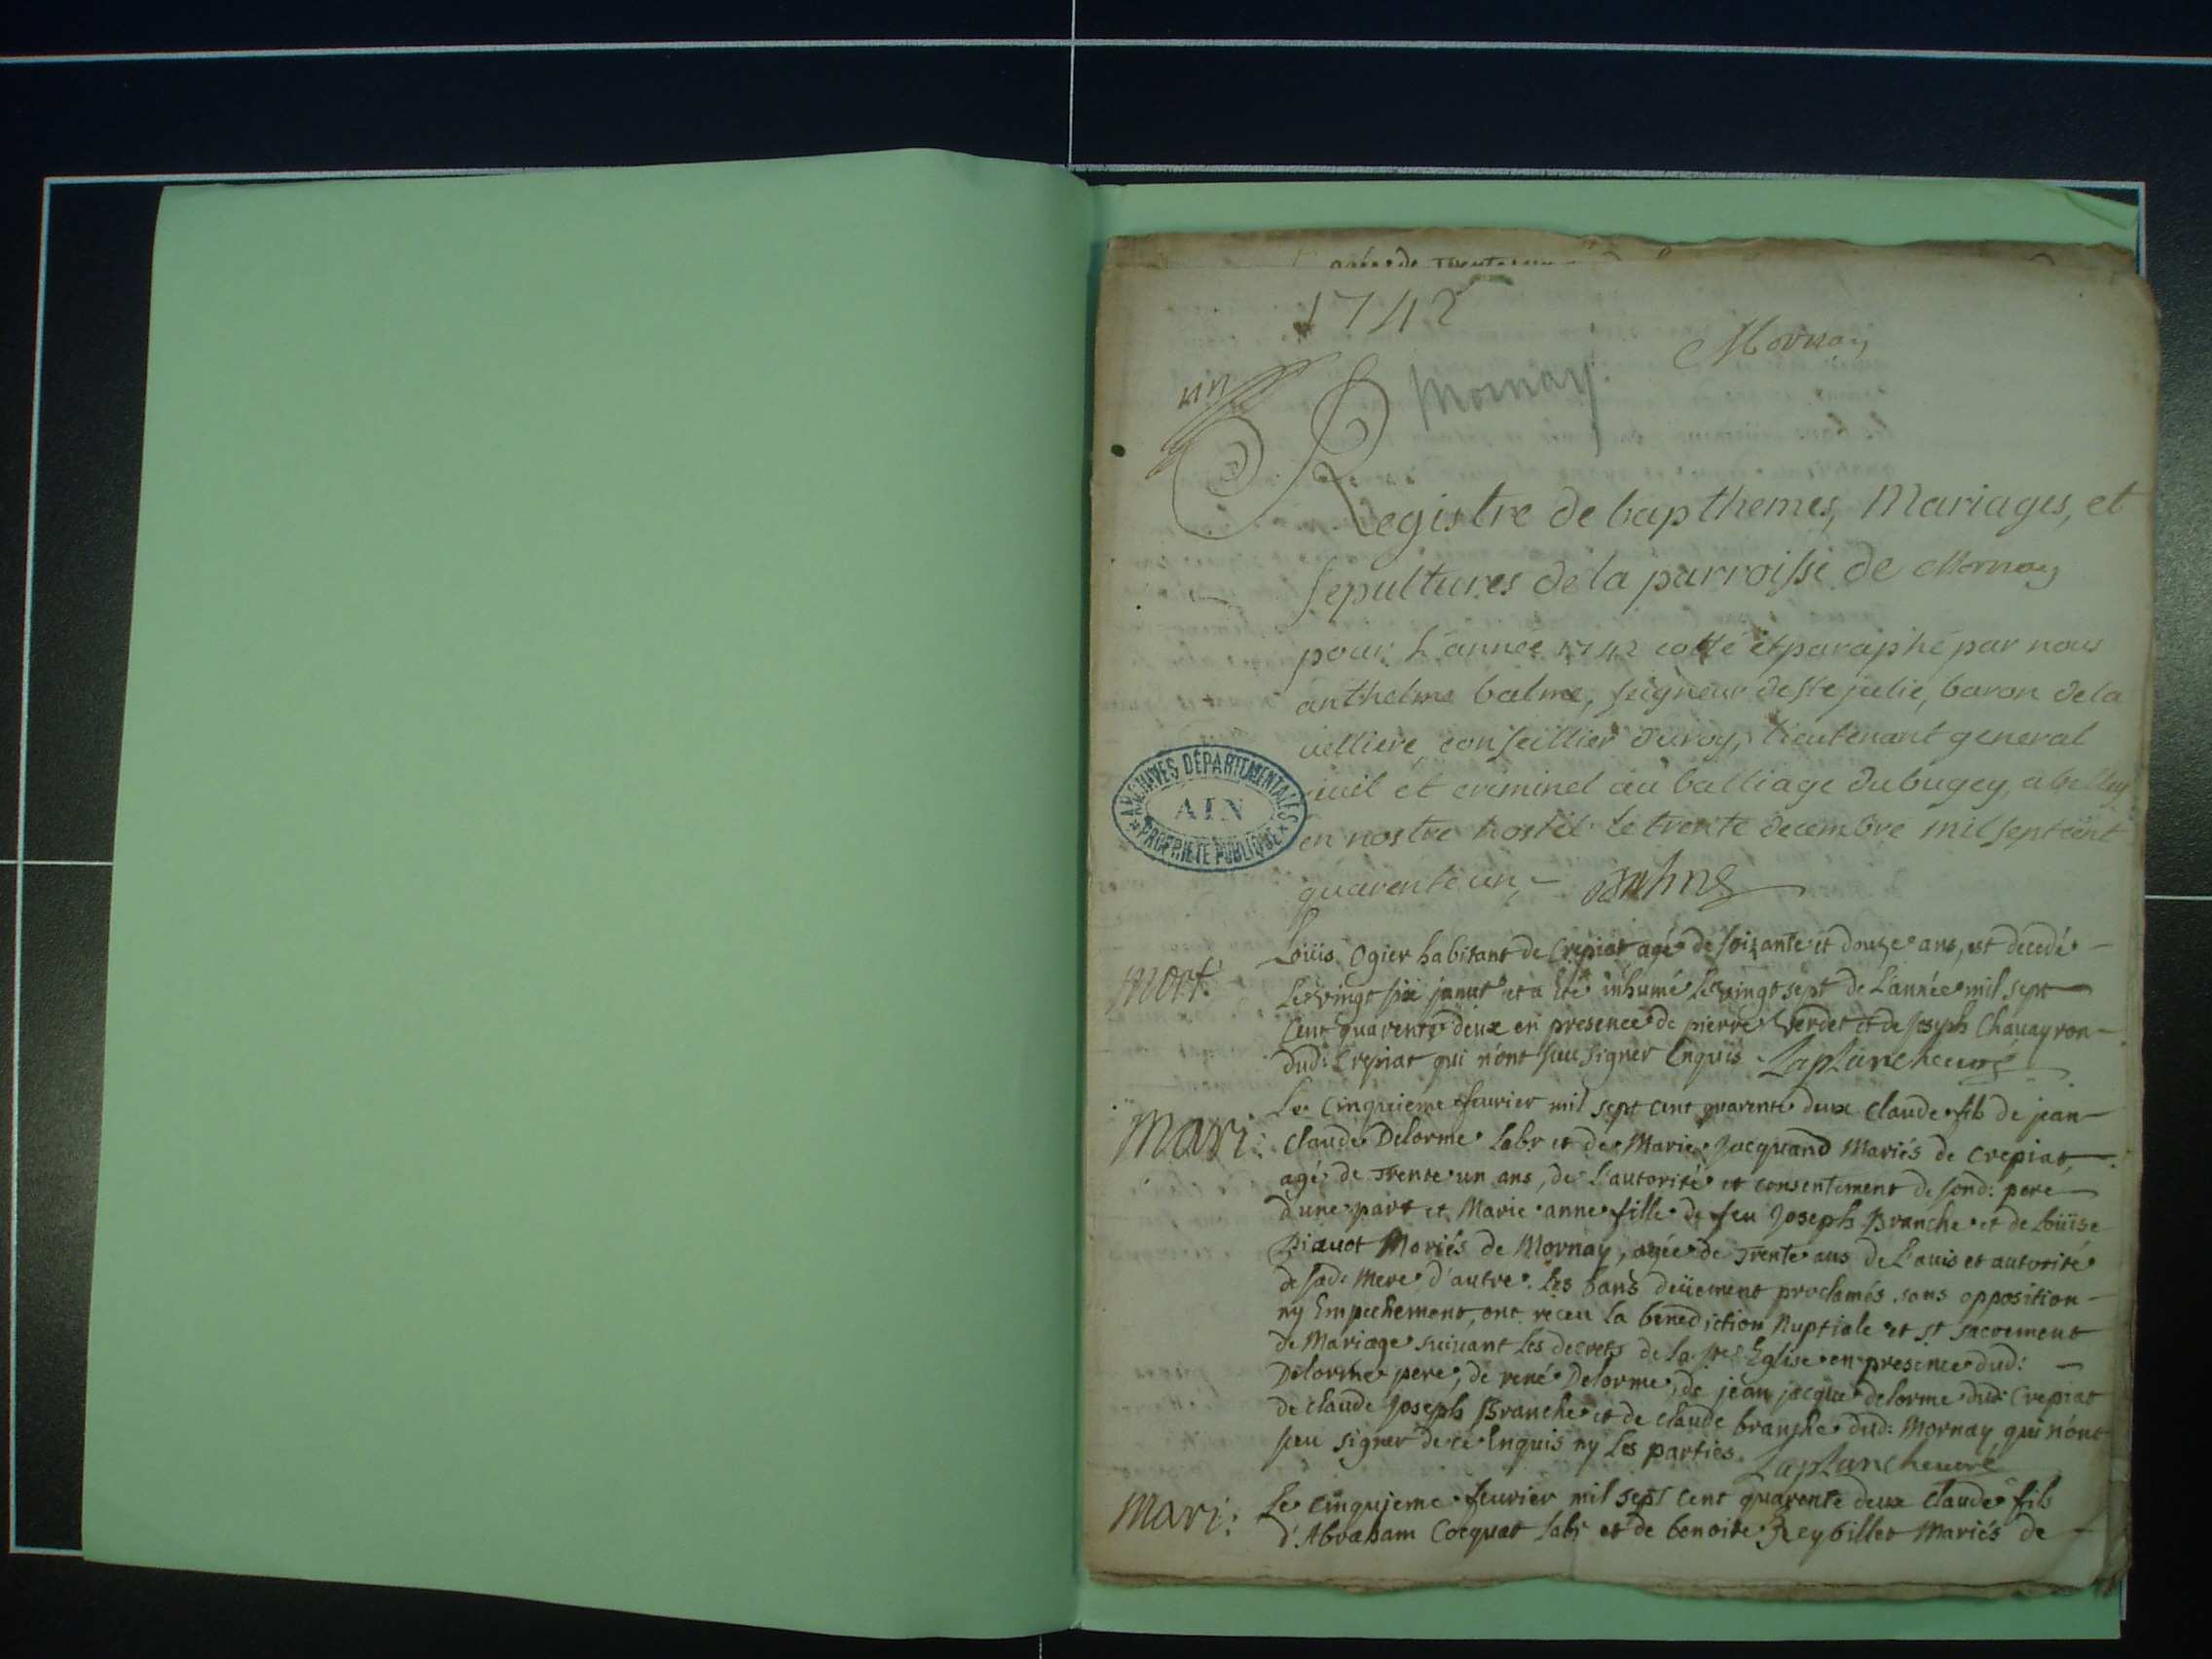 1742
Mornay
un
Mornay
Registre de bapthemes, Mariages, et
sepultures de la parroisse de Mornay
pour L'année 1742 cotté et paraphé par nous
anthelme balme, seigneur de ste julie, baron de la
velliere, conseillier du roy, lieutenant general
civil et criminel au balliage du bugey, a belley
en nostre hostel le trente decembre mil sept cent
quarente un,
ARCHIVES DÉPARTEMENTALES
AIN
PROPRIÉTÉ PUBLIQUE
Loüis Ogier habitant de Crepiat agé de soizante et douze ans, est decedé
Mort.
Le vingt six et a Eté inhumé Le vingt sept de L'année mil sept
Cent quarente deux en presence de pierre Verdet et de Joseph Chavayron
dud: Crepiat qui n'ont sceu signer Enquis Laplanche curé
Le Cinquieme fevrier mil sept cent quarente deux Claude fils de jean
Mari: Claude Delorme Labr et de Marie Jacquand Mariés de Crepiat,
agé de Trente un ans, de L'autorité et consentement de sond: pere
d'une part et Marie anne fille de feu Joseph Branche et de Loüise
Mariés de Mornay, agée de Trente ans de L'avis et autorité
de sad: Mere d'autre. Les bans deüement proclamés sans opposition
ny Empechement, ont receu la benediction Nuptiale et st sacrement
de Mariage suivant Les decrets de La ste Eglise en presence dud:
Delorme pere, de rené Delorme, de jean jacque delorme dud: Crepiat
de Claude Joseph Branche et de Claude branche dud: Mornay qui n'ont
sceu signer de ce Enquis ny Les parties. Laplanche curé
Mari: Le Cinquieme fevrier mil sept cent quarente deux Claude fils
d'Abraham Cocquat Labr et de benoite Reybillet Mariés de